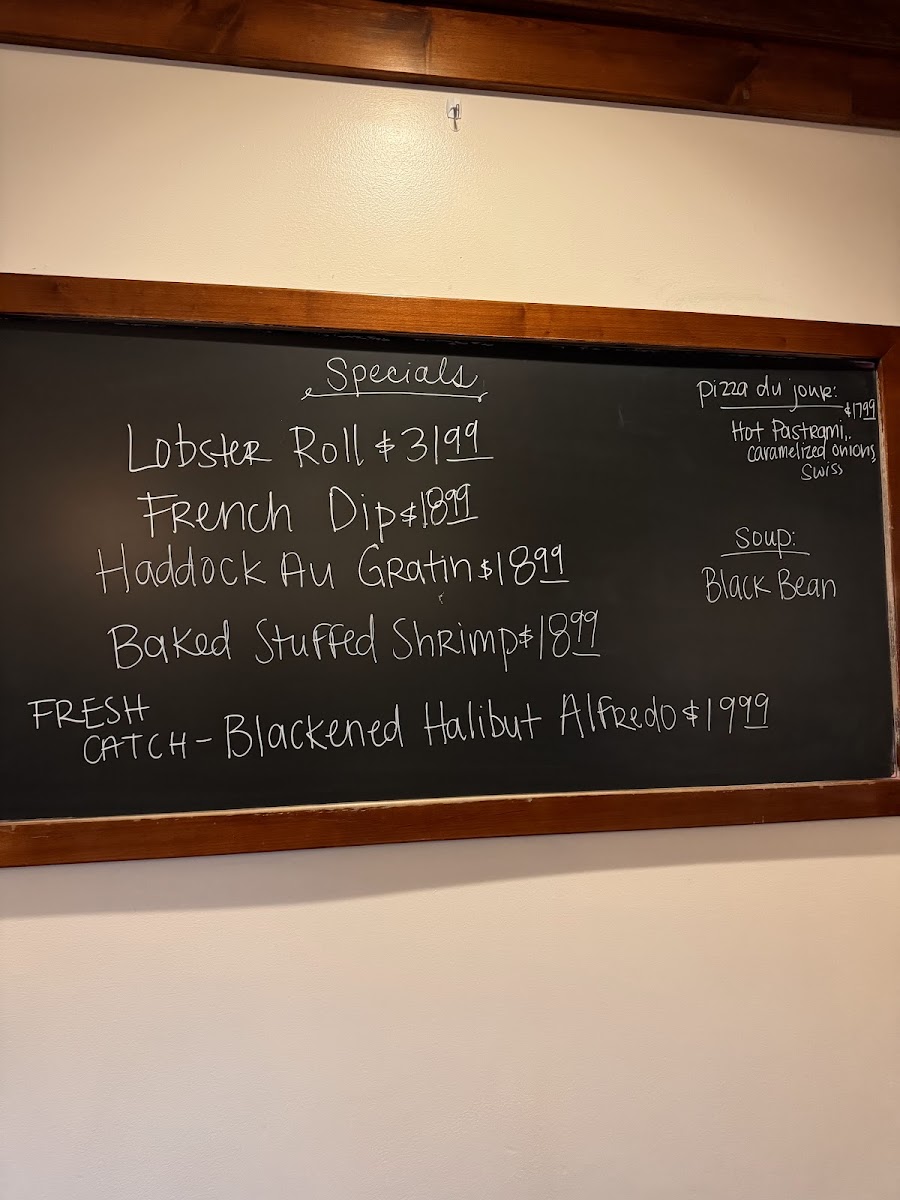 Specials
Lobster Roll $31.99
French Dip $18.99
Haddock Au Gratin $18.99
Baked Stuffed Shrimp $18.99
FRESH
CATCH - Blackened Halibut Alfredo $19.99
Pizza du jour:
$17.99
Hot Pastrami,
caramelized onions,
Swiss
Soup:
Black Bean